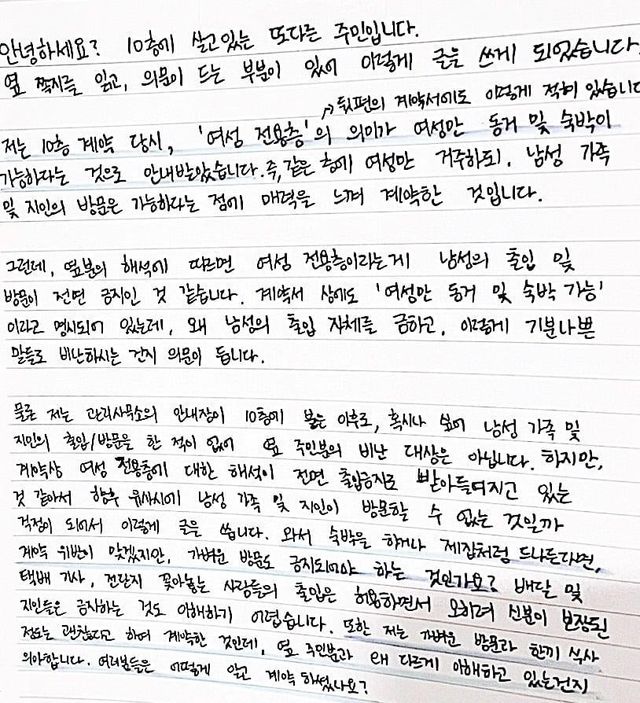 안녕하세요? 10층에 살고있는 또다른 주민입니다.
옆 쪽지를 읽고, 의문이 드는 부분이 있어 이렇게 글을 쓰게 되었습니다.
→ 뒤편의 계약서에도 이렇게 적혀 있습니다
저는 10층 계약 당시, '여성 전용층'의 의미가 여성만 동거 및 숙박이
가능하다는 것으로 안내받았습니다. 즉, 같은 층에 여성만 거주하되, 남성 가족
및 지인의 방문은 가능하다는 점에 매력을 느껴 계약한 것입니다.
그런데, 옆분의 해석에 따르면 여성 전용층이라는게 남성의 출입 및
방문이 전면 금지인 것 같습니다. 계약서 상에도 '여성만 동거 및 숙박 가능'
이라고 명시되어 있는데, 왜 남성의 출입 자체를 금하고, 이렇게 기분나쁜
말들로 비난하시는 건지 의문이 듭니다.
물론 저는 관리사무소의 안내장이 10층에 붙은 이후로, 혹시나 보여 남성 가족 및
지인의 출입/방문을 한 적이 없어 옆 주민분의 비난 대상은 아닙니다. 하지만,
계약상 여성 전용층에 대한 해석이 전면 출입금지로 받아들여지고 있는
것 같아서 향후 유사시에 남성 가족 및 지인이 방문할 수 없는 것일까
걱정이 되어서 이렇게 글을 씁니다. 와서 숙박을 하거나 제집처럼 드나든다면,
계약 위반이 맞겠지만, 가벼운 방문도 금지되어야 하는 것인가요? 배달 및
택배 기사, 전단지 꽂아놓는 사람들의 출입은 허용하면서 오히려 신분이 보장된
지인들은 금지하는 것도 이해하기 어렵습니다. 또한 저는 가벼운 방문과 한끼 식사
정도는 괜찮다고 하여 계약한 것인데, 옆 주민분과 왜 다르게 이해하고 있는건지
의아합니다. 여러분들은 어떻게 알고 계약 하셨나요?